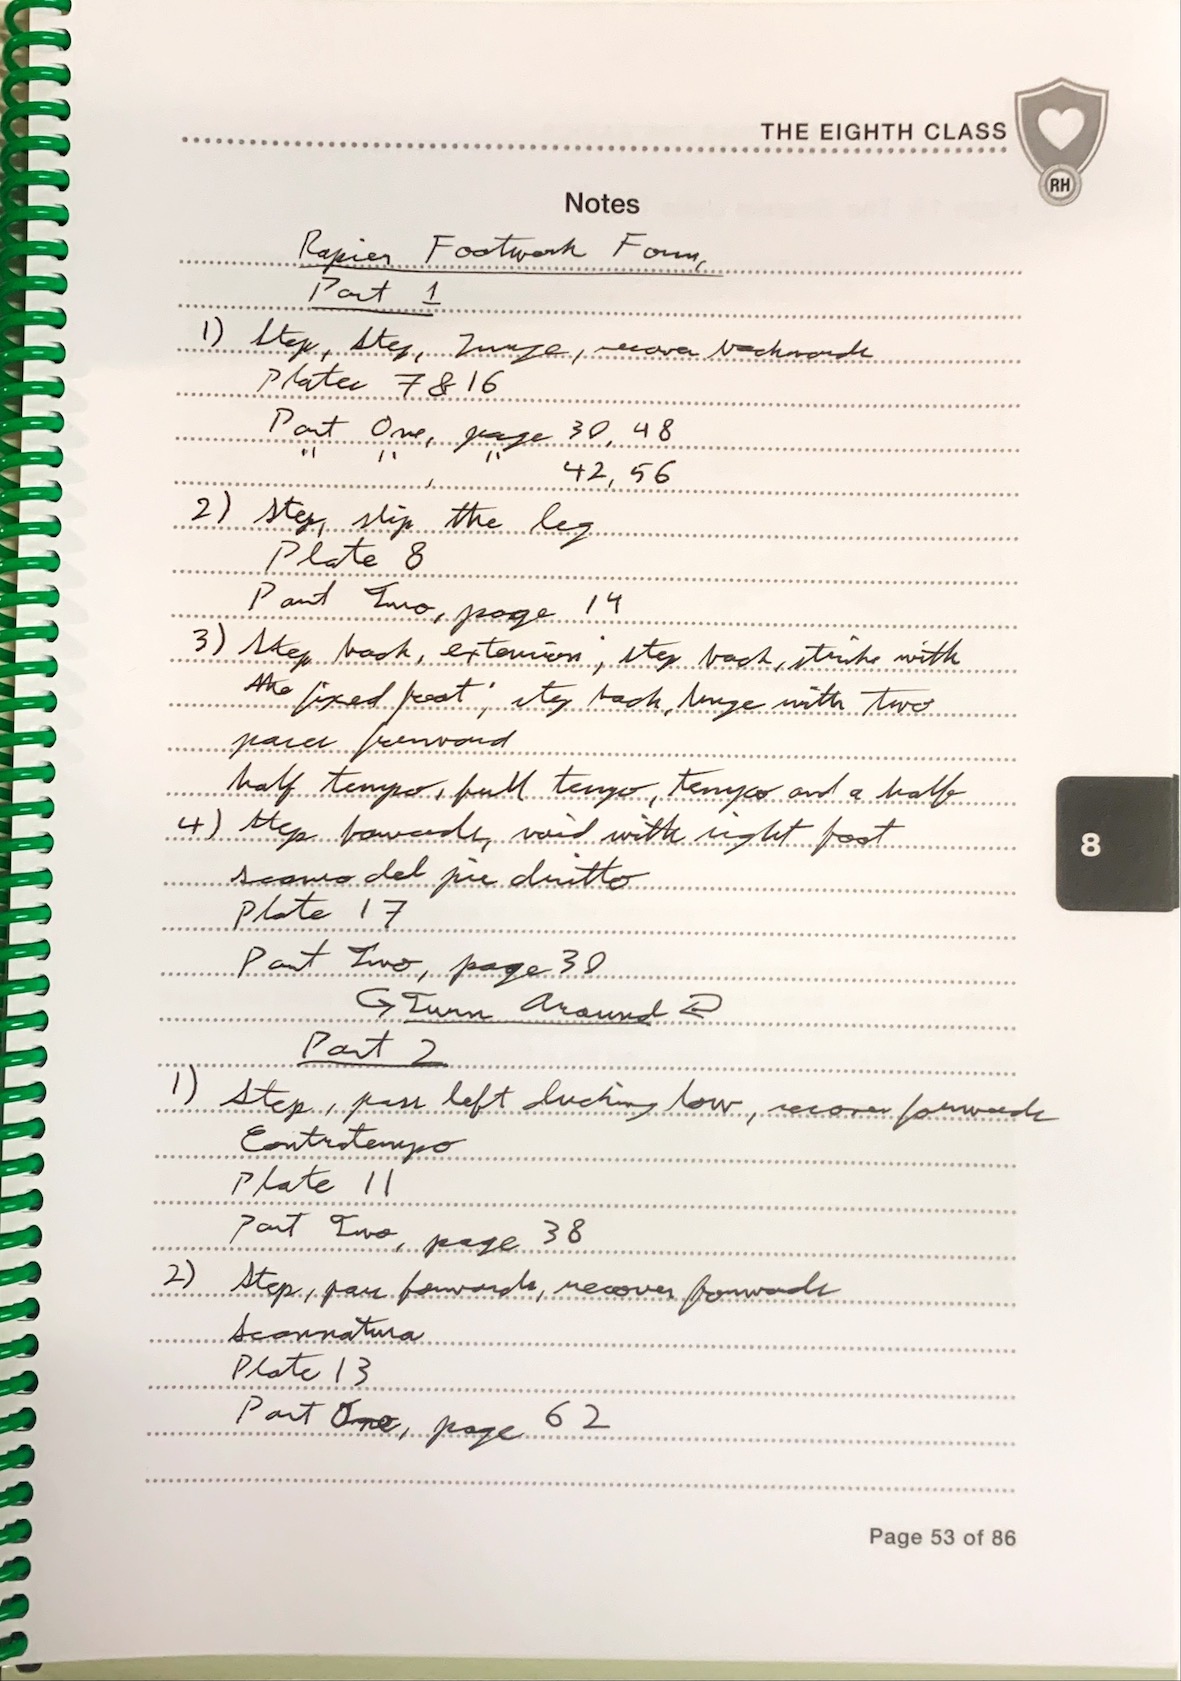 THE EIGHTH CLASS
RH
Notes
Rapier Footwork Form,
Part 1
1) Step, step, lunge, recover backwards
Plates 7 & 16
Part One, page 30, 48
" " , " 42, 56
2) Step, slip the leg
Plate 8
Part Two, page 14
3) Step back, extension; step back, strike with
the fixed foot; step back, lunge with two
paces forward
half tempo, full tempo, tempo and a half
4) Step forwards, void with right foot
scanso del pie diritto
Plate 17
Part Two, page 30
Turn Around
Part 2
1) Step, pass left ducking low, recover forwards
Contratempo
Plate 11
Part Two, page 38
2) Step, pass forwards, recover forwards
Scannatura
Plate 13
Part One, page 62
8
Page 53 of 86